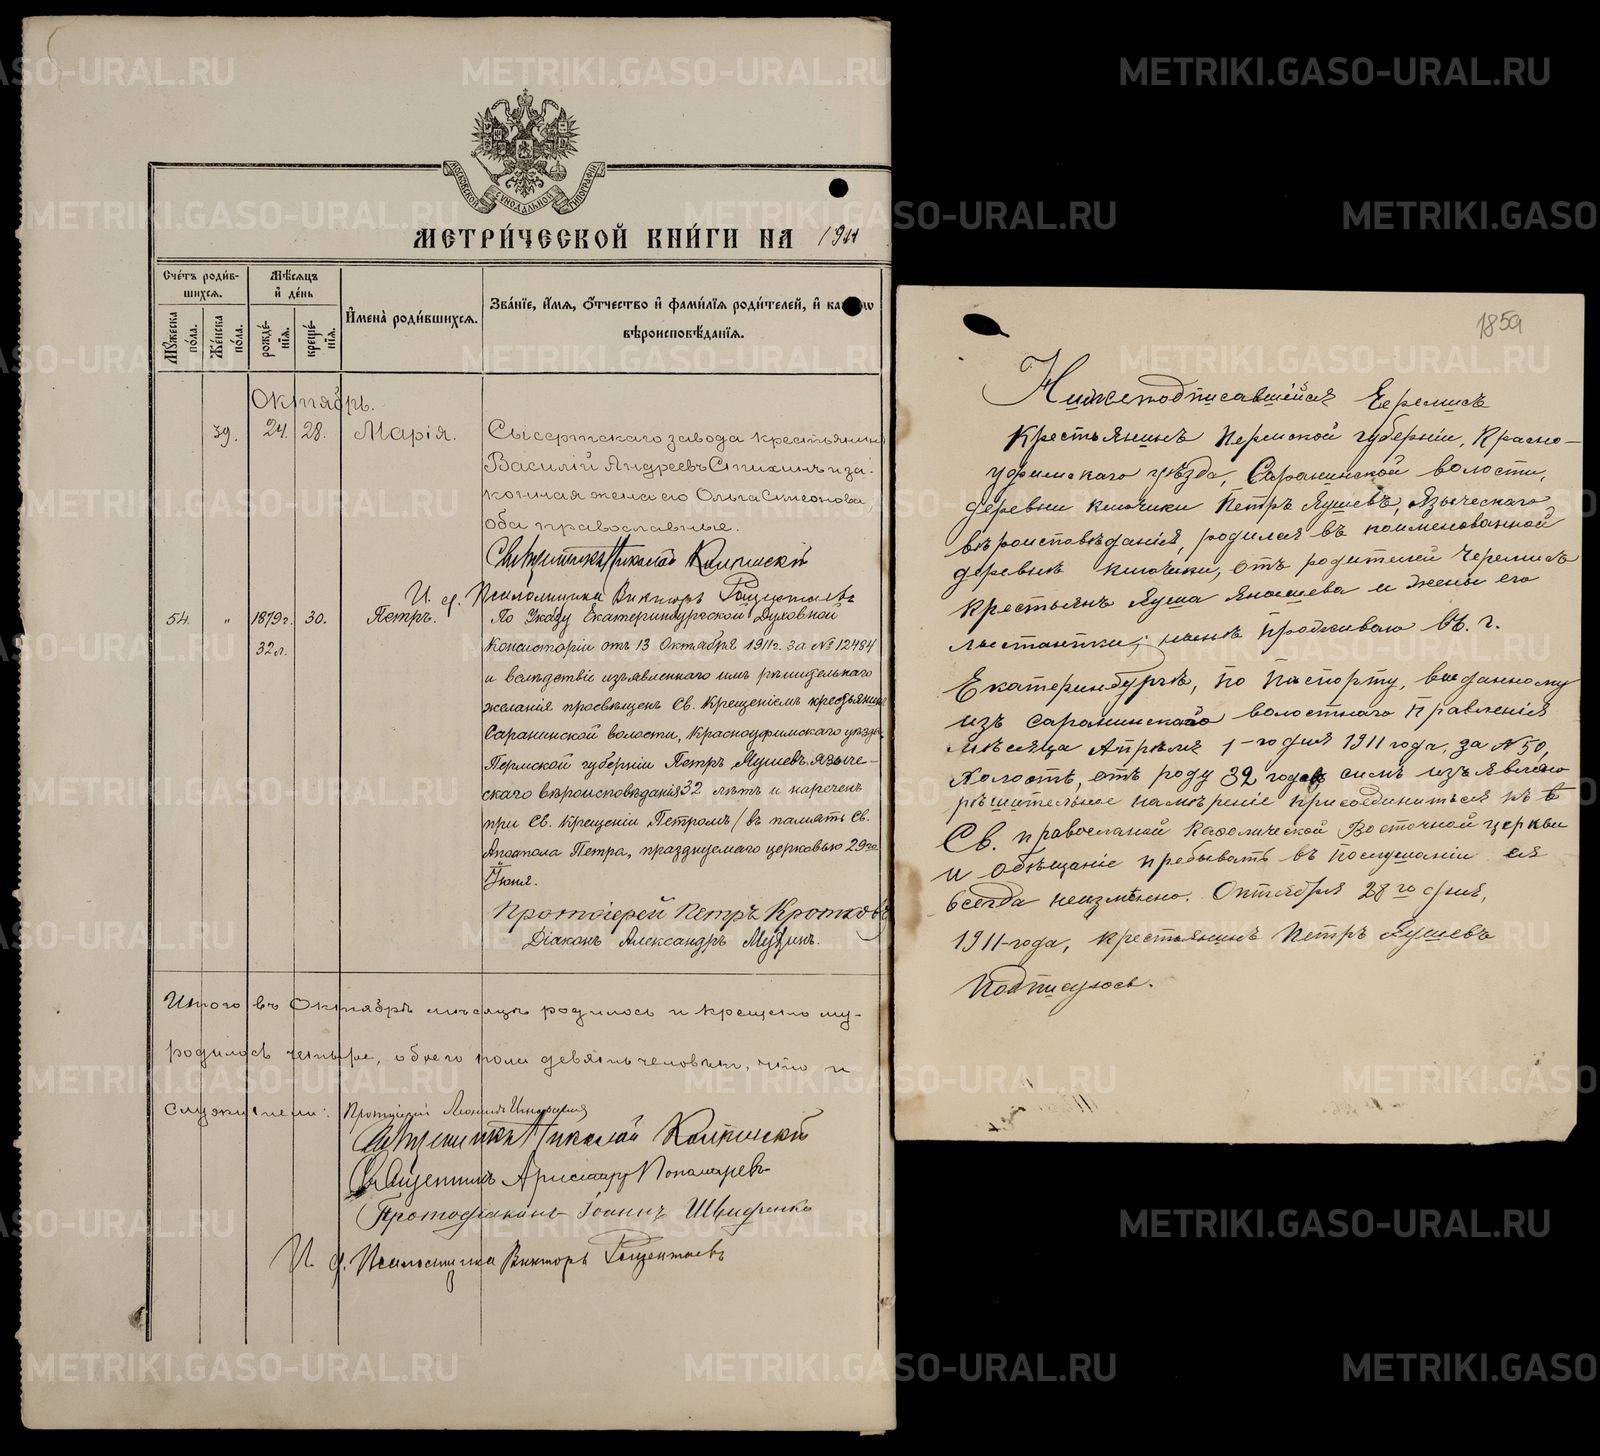 МОСКОВСКОЙ СУНОДАЛЬНОЙ ТИПОГРАФІИ
МЕТРИ́ЧЕСКОЙ КНИ́ГИ НА 1911
Сче́тъ роди́вшихсѧ.
Мѣ́сѧцъ и҆ де́нь
И҆мена̀ роди́вшихсѧ.
Зва́нїе, и҆́мѧ, ѻ҆́тчество и҆ фами́лїѧ роди́телей, и҆
вѣроисповѣ́данїѧ.
Мꙋ́жеска по́ла.
Же́нска по́ла.
рожде́нїѧ.
креще́нїѧ.
Октябрь.
39. 24. 28. Марія. Сысертскаго завода крестьянинъ
Василій Андреевъ и за-
конная жена его Ольга Симеонова,
оба православные.
Священникъ Николай
И. д. Псаломщика Викторъ
54. " 1879 г. 30. Петръ. По Указу Екатеринбургской Духовной
32 л. Консисторіи отъ 13 Октября 1911 г. за № 12484
и вслѣдствіе изъявленнаго имъ рѣшительнаго
желанія просвѣщенъ Св. Крещеніемъ крестьянинъ
Саранинской волости, Красноуфимскаго уѣзда,
Пермской губерніи Петръ Яушевъ языче-
скаго вѣроисповѣданія 32 лѣтъ и нареченъ
при Св. Крещеніи Петромъ / въ память Св.
Апостола Петра, празднуемаго церковью 29го
Іюня.
Протоіерей Петръ Кротковъ
Діаконъ Александръ
Итого въ Октябрѣ мѣсяцѣ родилось и крещено му-
родилось четыре, обоего пола девять человѣкъ, что и
служители: Протоіерей
Священникъ Николай
Священникъ Аристархъ Пономаревъ
Протодіаконъ Іоаннъ
И. д. Псаломщика Викторъ
185а
Нижеподписавшійся Черемисъ
Крестьянинъ Пермской губерніи, Красно-
уфимскаго уѣзда, Саранинской волости,
деревни Ключики Петръ Яушевъ, Языческаго
вѣроисповѣданія, родился въ поименованной
деревнѣ Ключики, отъ родителей Черемисъ
Крестьянъ Яуша Янышева и жены его
нынѣ проживаю въ г.
Екатеринбургѣ, по паспорту, выданному
изъ Саранинскаго волостнаго Правленія
мѣсяца Апрѣля 1-го дня 1911 года, за № 50,
Холостъ, отъ роду 32 годовъ симъ изъявляю
рѣшительное намѣреніе присоединиться къ
Св. православной Каѳолической Восточной церкви
и обѣщаніе пребывать въ послушаніи ея
всегда неизмѣнно. Октября 28го дня,
1911-года, Крестьянинъ Петръ Яушевъ
подписуюсь.
METRIKI.GASO-URAL.RU